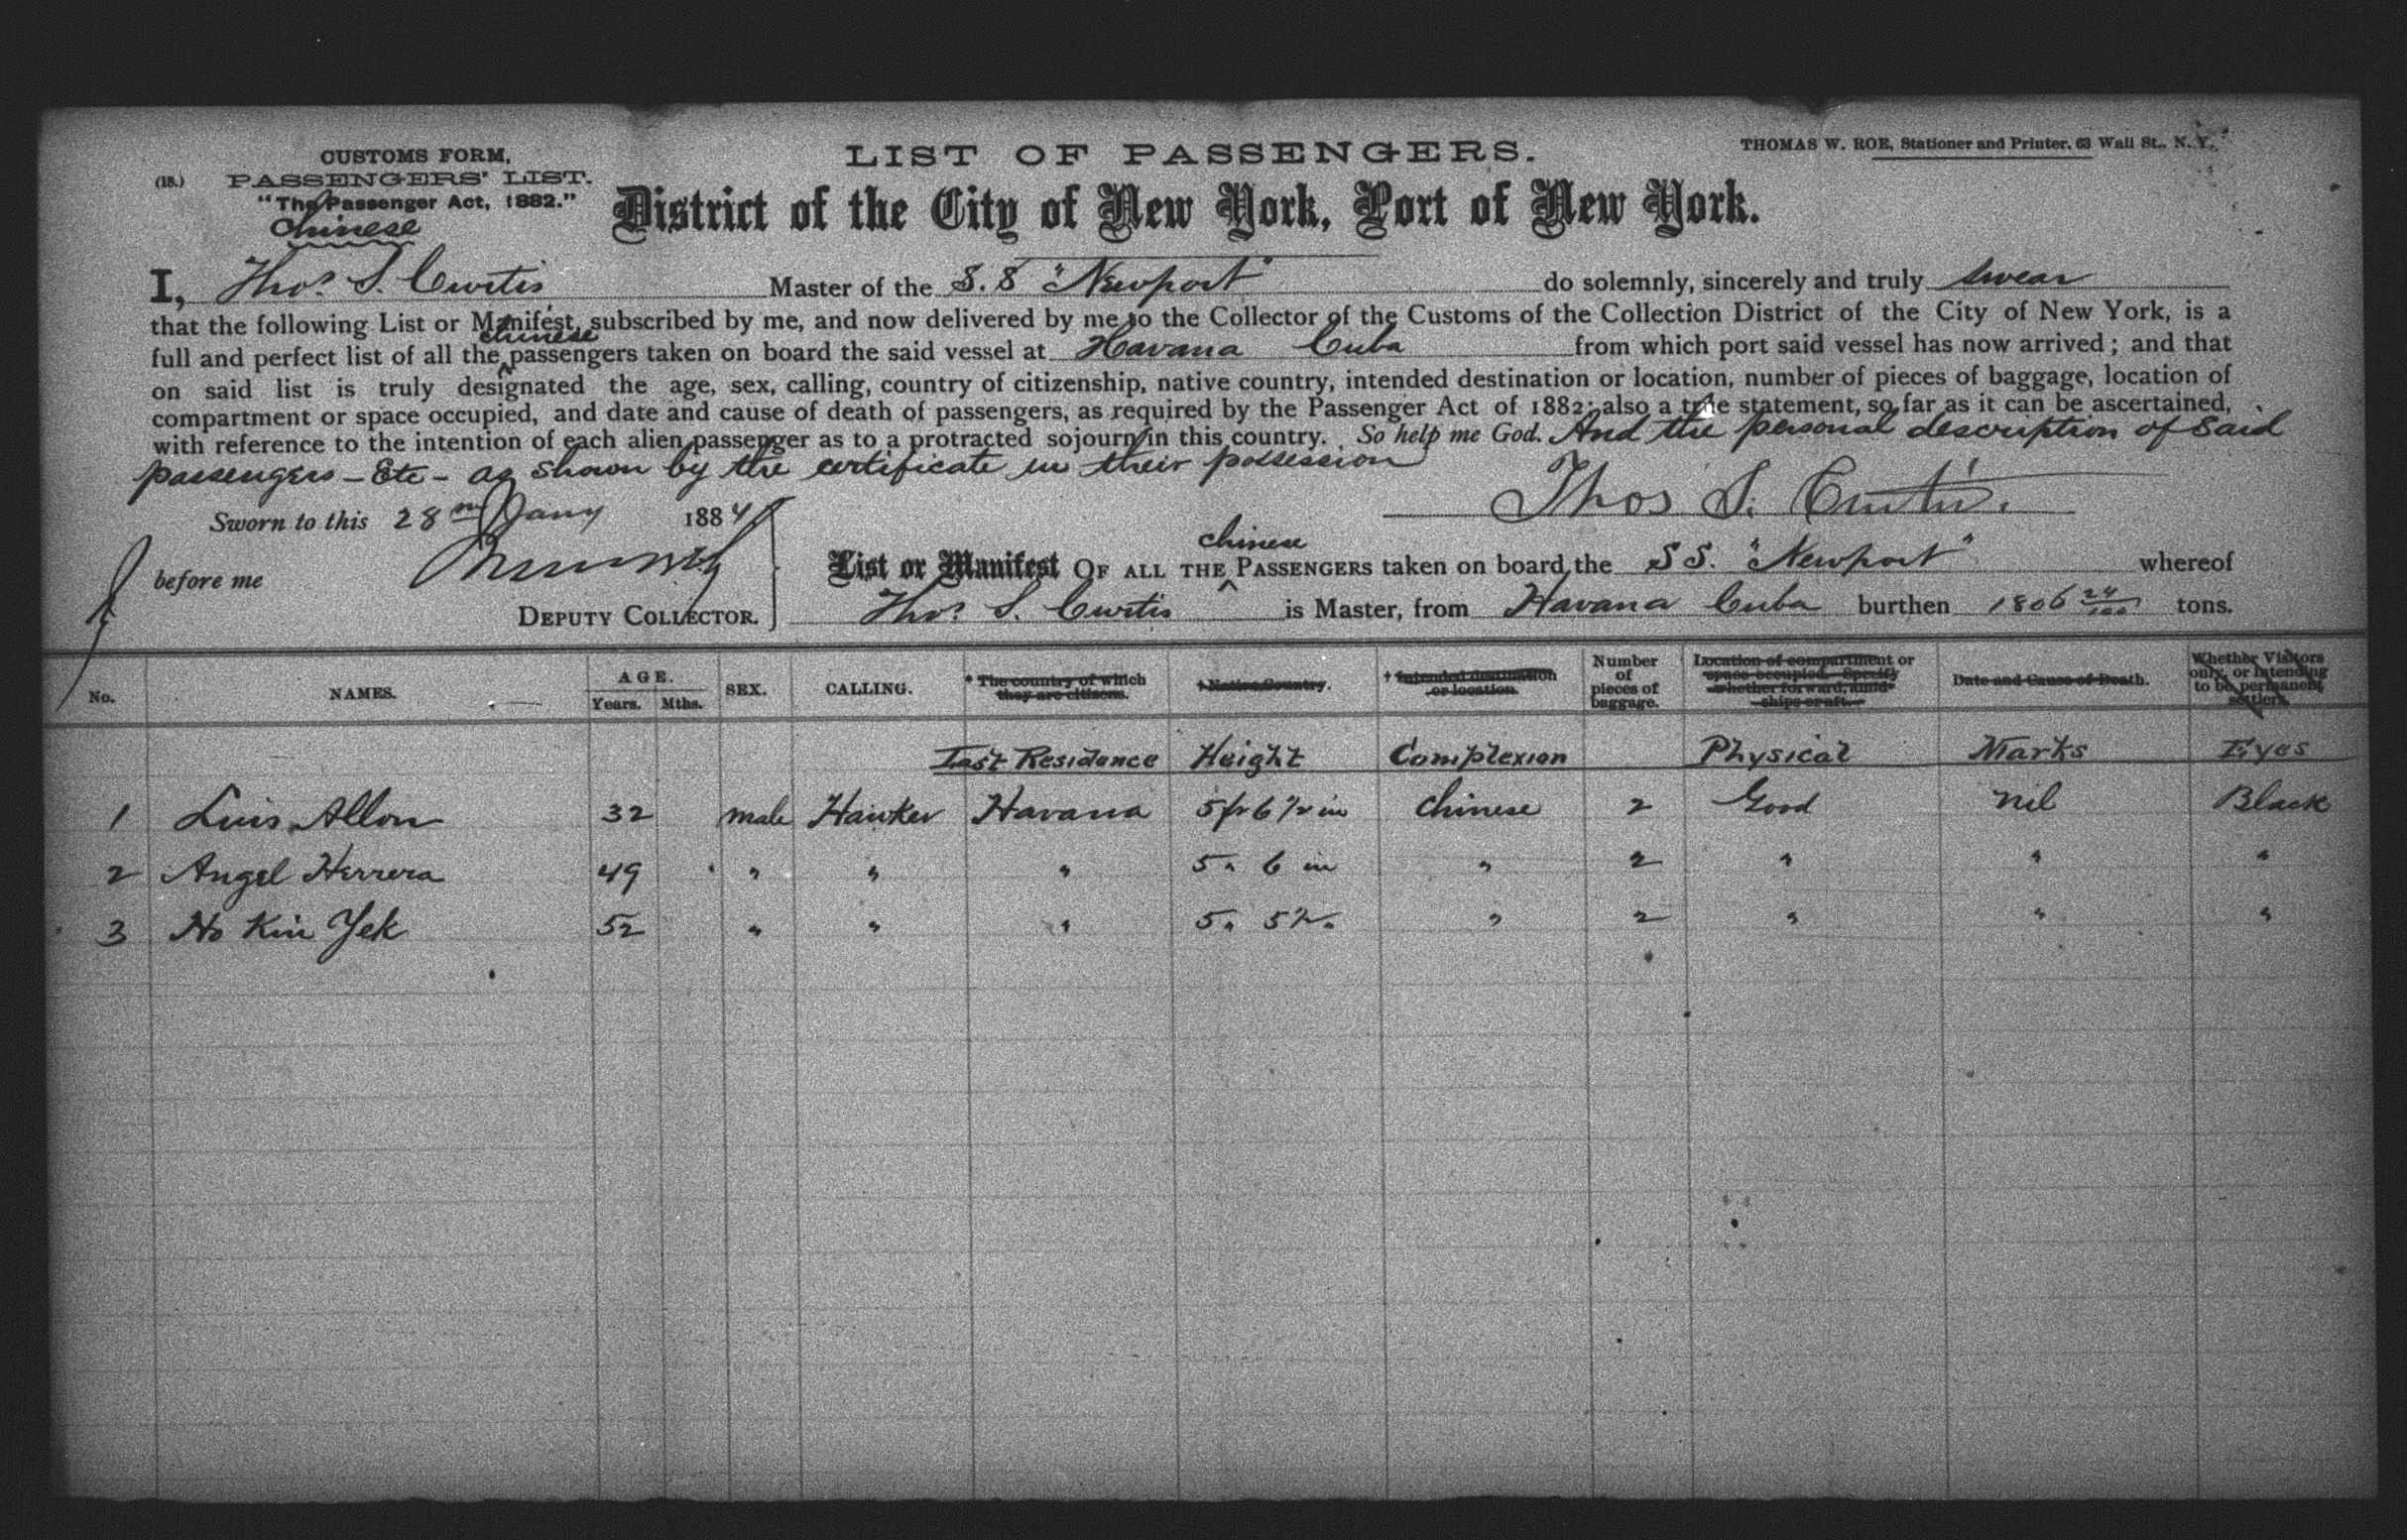 CUSTOMS FORM.
(18.) PASSENGERS' LIST.
"The Passenger Act, 1882."
Chinese
LIST OF PASSENGERS.
THOMAS W. ROE, Stationer and Printer, 63 Wall St., N.Y.
District of the City of New York, Port of New York.
I, Thos. S. Curtis Master of the S.S "Newport" do solemnly, sincerely and truly swear
that the following List or Manifest, subscribed by me, and now delivered by me to the Collector of the Customs of the Collection District of the City of New York, is a
full and perfect list of all the chinese passengers taken on board the said vessel at Havana Cuba from which port said vessel has now arrived; and that
on said list is truly designated the age, sex, calling, country of citizenship, native country, intended destination or location, number of pieces of baggage, location of
compartment or space occupied, and date and cause of death of passengers, as required by the Passenger Act of 1882; also a true statement, so far as it can be ascertained,
with reference to the intention of each alien passenger as to a protracted sojourn in this country. So help me God. And the personal description of said
passengers - Etc - as shown by the certificate in their possession
Thos S. Curtis.
Sworn to this 28 Jany 1884
before me
DEPUTY COLLECTOR.
List or Manifest OF ALL THE chinese PASSENGERS taken on board the SS. "Newport" whereof
Thos. S. Curtis is Master, from Havana Cuba burthen 1806 24/100 tons.
No. NAMES. AGE. Years. Mths. SEX. CALLING. * The country of which they are citizens. † Native Country. † Intended destination or location. Number of pieces of baggage. Location of compartment or space occupied. Specify whether forward, amidships or aft. Date and Cause of Death. Whether Visitors only, or Intending to be permanent settlers.
Last Residence Height Complexion Physical Marks Eyes
1 Luis Allon 32 male Hawker Havana 5 ft 6 1/2 in Chinese 2 Good nil Black
2 Angel Herrera 49 " " " 5 " 6 in " 2 " " "
3 Ho Kin Yek 52 " " " 5 " 5 1/2 " " 2 " " "